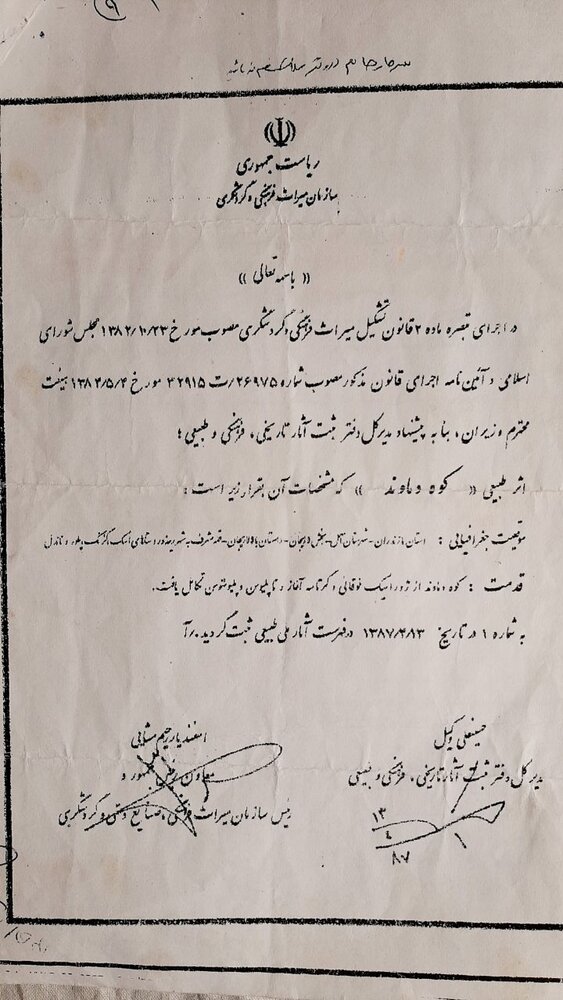 ریاست جمهوری
سازمان میراث فرهنگی و گردشگری
(( باسمه تعالی ))
در اجرای تبصره ماده ۲ قانون تشکیل میراث فرهنگی و گردشگری مصوب مورخ ۱۳۸۲/۱۰/۲۳ مجلس شورای
اسلامی و آئین نامه اجرای قانون مذکور مصوب شماره ۲۶۹۷۵/ت ۳۲۹۱۵ مورخ ۱۳۸۴/۵/۴ هیئت
محترم وزیران ، بنا به پیشنهاد مدیر کل دفتر ثبت آثار تاریخی ، فرهنگی و طبیعی ؛
اثر طبیعی (( کوه دماوند )) که مشخصات آن بقرار زیر است :
موقعیت جغرافیایی : استان مازندران - شهرستان آمل - بخش لاریجان - دهستان بالا لاریجان - قله مشرف به شهر رینه و روستاهای اسک گزنگ پلور و ناندل
قدمت : کوه دماوند از ژوراسیک فوقانی و کرتاسه آغاز و تا پلیوسن و پلیئستوسن تکامل یافت .
به شماره ۱ در تاریخ ۱۳۸۷/۴/۱۳ در فهرست آثار ملی طبیعی ثبت گردید ./آ
حسینعلی وکیل
مدیر کل دفتر ثبت آثار تاریخی ، فرهنگی و طبیعی
۱۳
۴
۸۷
اسفندیار رحیم مشایی
معاون رئیس جمهور و
رئیس سازمان میراث فرهنگی ، صنایع دستی و گردشگری